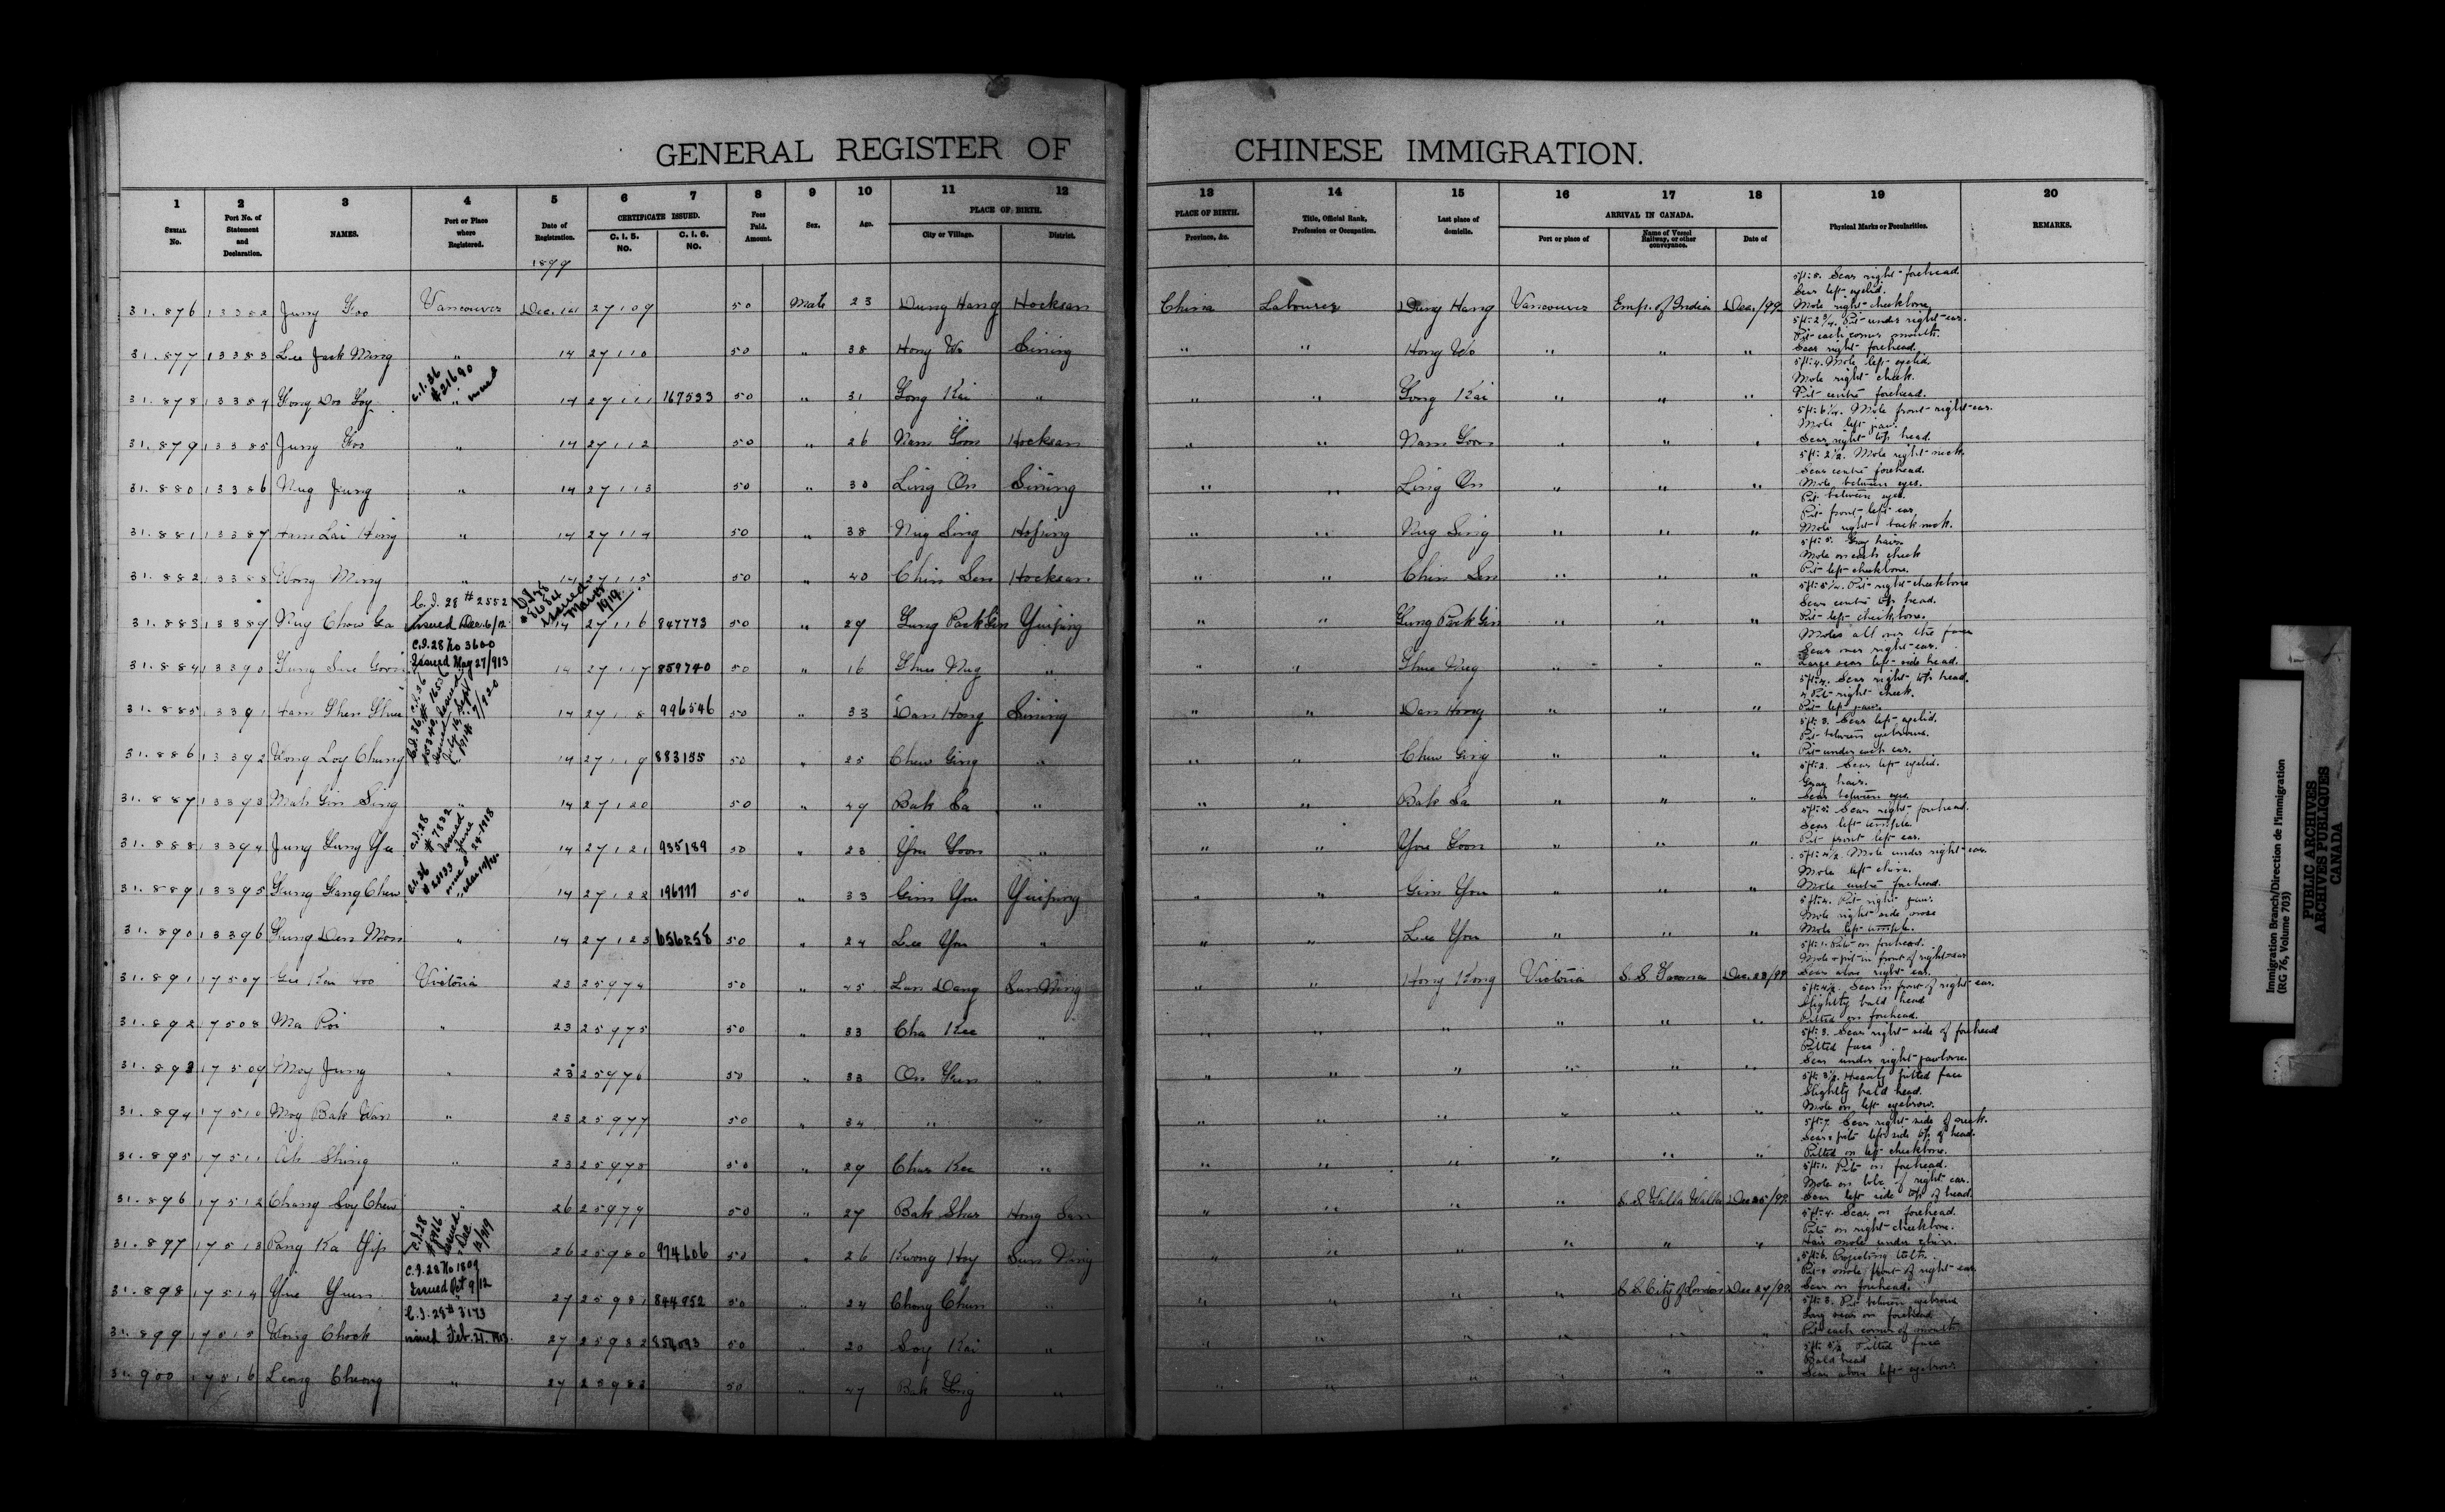 GENERAL REGISTER OF CHINESE IMMIGRATION.
1 2 3 4 5 6 7 8 9 10 11 12 13 14 15 16 17 18 19 20
SERIAL No. Port No. of Statement and Declaration. NAMES. Port or Place where Registered. Date of Registration. CERTIFICATE ISSUED. C. I. 5. No. C. I. 6. No. Fees Paid. Amount. Sex. Age. PLACE OF BIRTH. City or Village. District. PLACE OF BIRTH. Province, &c. Title, Official Rank, Profession or Occupation. Last place of domicile. ARRIVAL IN CANADA. Port or place of Name of Vessel Railway, or other conveyance. Date of Physical Marks or Peculiarities. REMARKS.
1899
31.876 13382 Jung Foo Vancouver Dec. 14 27109 50 Male 23 Dung Hang Hocksan China Labourer Dung Hang Vancouver Emp. of India Dec./99 5ft. 8. Scar right forehead. Scar left eyelid. Mole right cheekbone.
31.877 13383 Lee Jack Ming " 14 27110 50 " 38 Hong Wo Sining " " Hong Wo " " " 5ft. 2 3/4. Pit under right ear. Pit each corner mouth. Scar right forehead.
31.878 13384 C.I.36 #21690 " 14 27111 167533 50 " 31 Gong Kai " " " Gong Kai " " " 5ft. 4. Mole left eyelid. Mole right cheek. Pit centre forehead.
31.879 13385 Jung Foo " 14 27112 50 " 26 Nam Goon Hocksan " " Nam Goon " " " 5ft. 6 1/4. Mole front right ear. Mole left jaw. Scar right top head.
31.880 13386 Nug Jung " 14 27113 50 " 30 Ling On Sining " " Ling On " " " 5ft. 2 1/2. Mole right neck. Scar centre forehead. Mole between eyes.
31.881 13387 Ham Lai Hong " 14 27114 50 " 38 Nug Sing " " Nug Sing " " " Pit between eyes. Pit front left ear. Mole right back neck.
31.882 13388 Wong Ming " 14 27115 50 " 40 Chin Sen Hocksan " " Chin Sen " " " 5ft. 5. Gray hair. Mole on each cheek Pit left cheekbone.
31.883 13389 Nug Chow Ga C.I. 28 # 2552 Issued Dec. 6/12 Issued March 1919 14 27116 847773 50 " 29 Gung Pack Gin Yinping " " Gung Pack Gin " " " 5ft. 5 1/2. Pit right cheekbone Scar centre top head. Pit left cheekbone.
31.884 13390 C.I.28 No 3600 Issued May 27/913 14 27117 859740 50 " 16 Shue Nug " " " Shue Nug " " " Moles all over the face Scar over right ear. Large scar left side head.
31.885 13391 14 27118 996546 50 " 33 Dan Hong Sining " " Dan Hong " " " 5ft. 4. Scar right top head. 4 Pit right cheek. Pit left jaw.
31.886 13392 Wong Loy Chung 14 27119 883155 50 " 25 Chew Ging " " " Chew Ging " " " 5ft. 3. Scar left eyelid. Pit between eyebrows. Pit under each ear.
31.887 13393 Mah Gin Sing " 14 27120 50 " 49 Bak Sa " " " Bak Sa " " " 5ft. 2. Scar left eyelid. Gray hair. Scar between eyes.
31.888 13394 Jung Gung Yu C.I.28 # 7832 Issued June 24-1918 14 27121 935189 50 " 23 You Goon " " " You Goon " " " 5ft. 5. Scar right forehead. Scar left temple. Pit front left ear.
31.889 13395 Gung Gang Chew C.I.36 14 27122 196777 50 " 33 Gim You Yinping " " Gim You " " " 5ft. 4 1/2. Mole under right ear. Mole left chin. Mole centre forehead.
31.890 13396 Gung Den Mon " 14 27123 656258 50 " 24 Lee You " " " Lee You " " " 5ft. 4. Pit right jaw. Mole right side nose Mole left temple.
31.891 17507 Victoria 23 25974 50 " 45 Lun Dang Sun Ning " " Hong Kong Victoria S. S. Tacoma Dec. 23/99 5ft. 1. Pits on forehead. Mole & pit in front of right ear Scar above right ear.
31.892 17508 Ma Poi " 23 25975 50 " 33 Cha Kee " " " " " " " 5ft. 4 1/2. Scar in front of right ear. Slightly bald head Pitted on forehead.
31.893 17509 Moy Jung " 23 25976 50 " 33 On Fun " " " " " " " 5ft. 3. Scar right side of forehead Pitted face Scar under right jawbone.
31.894 17510 Moy Bak Wan " 23 25977 50 " 34 " " " " " " " " 5ft. 3 1/2. Heavily pitted face Slightly bald head. Mole on left eyebrow.
31.895 17511 Ah Shing " 23 25978 50 " 29 Char Kee " " " " " " " 5ft. 7. Scar right side of cheek. Scar & pits left side top of head. Pitted on left cheekbone.
31.896 17512 Chang Soy Chew " 26 25979 50 " 27 Bak Shar Hong San " " " " S. S. Walla Walla Dec 25/99 5ft. 1. Pits on forehead. Mole on lobe of right ear. Scar left side top of head.
31.897 17513 Pang Ka Yip C.I.28 Issued Dec 26 25980 974606 50 " 26 Kwong Hoy Sun Ning " " " " " " 5ft. 4. Scar on forehead. Pits on right cheekbone. Hair mole under chin.
31.898 17514 Yue Yuen C.I.28 No 1809 Issued Oct 9/12 27 25981 844952 50 " 24 Chong Chun " " " " " S. S. City of London Dec 27/99 5ft. 6. Projecting teeth. Pit & mole front of right ear. Scar on forehead.
31.899 17515 Wong Chock C.I.28# 3173 issued Feb. 21-1913. 27 25982 50 " 20 Soy Kai " " " " " " " 5ft. 3. Pit between eyebrows Long scar on forehead Pit each corner of mouth
31.900 17516 Leong Cheong " 27 25983 50 " 47 Bak Long " " " " " " " 5ft. 5 1/2. Pitted face Bald head Scar above left eyebrow
Immigration Branch/Direction de l'immigration
(RG 76, Volume 703)
PUBLIC ARCHIVES
ARCHIVES PUBLIQUES
CANADA